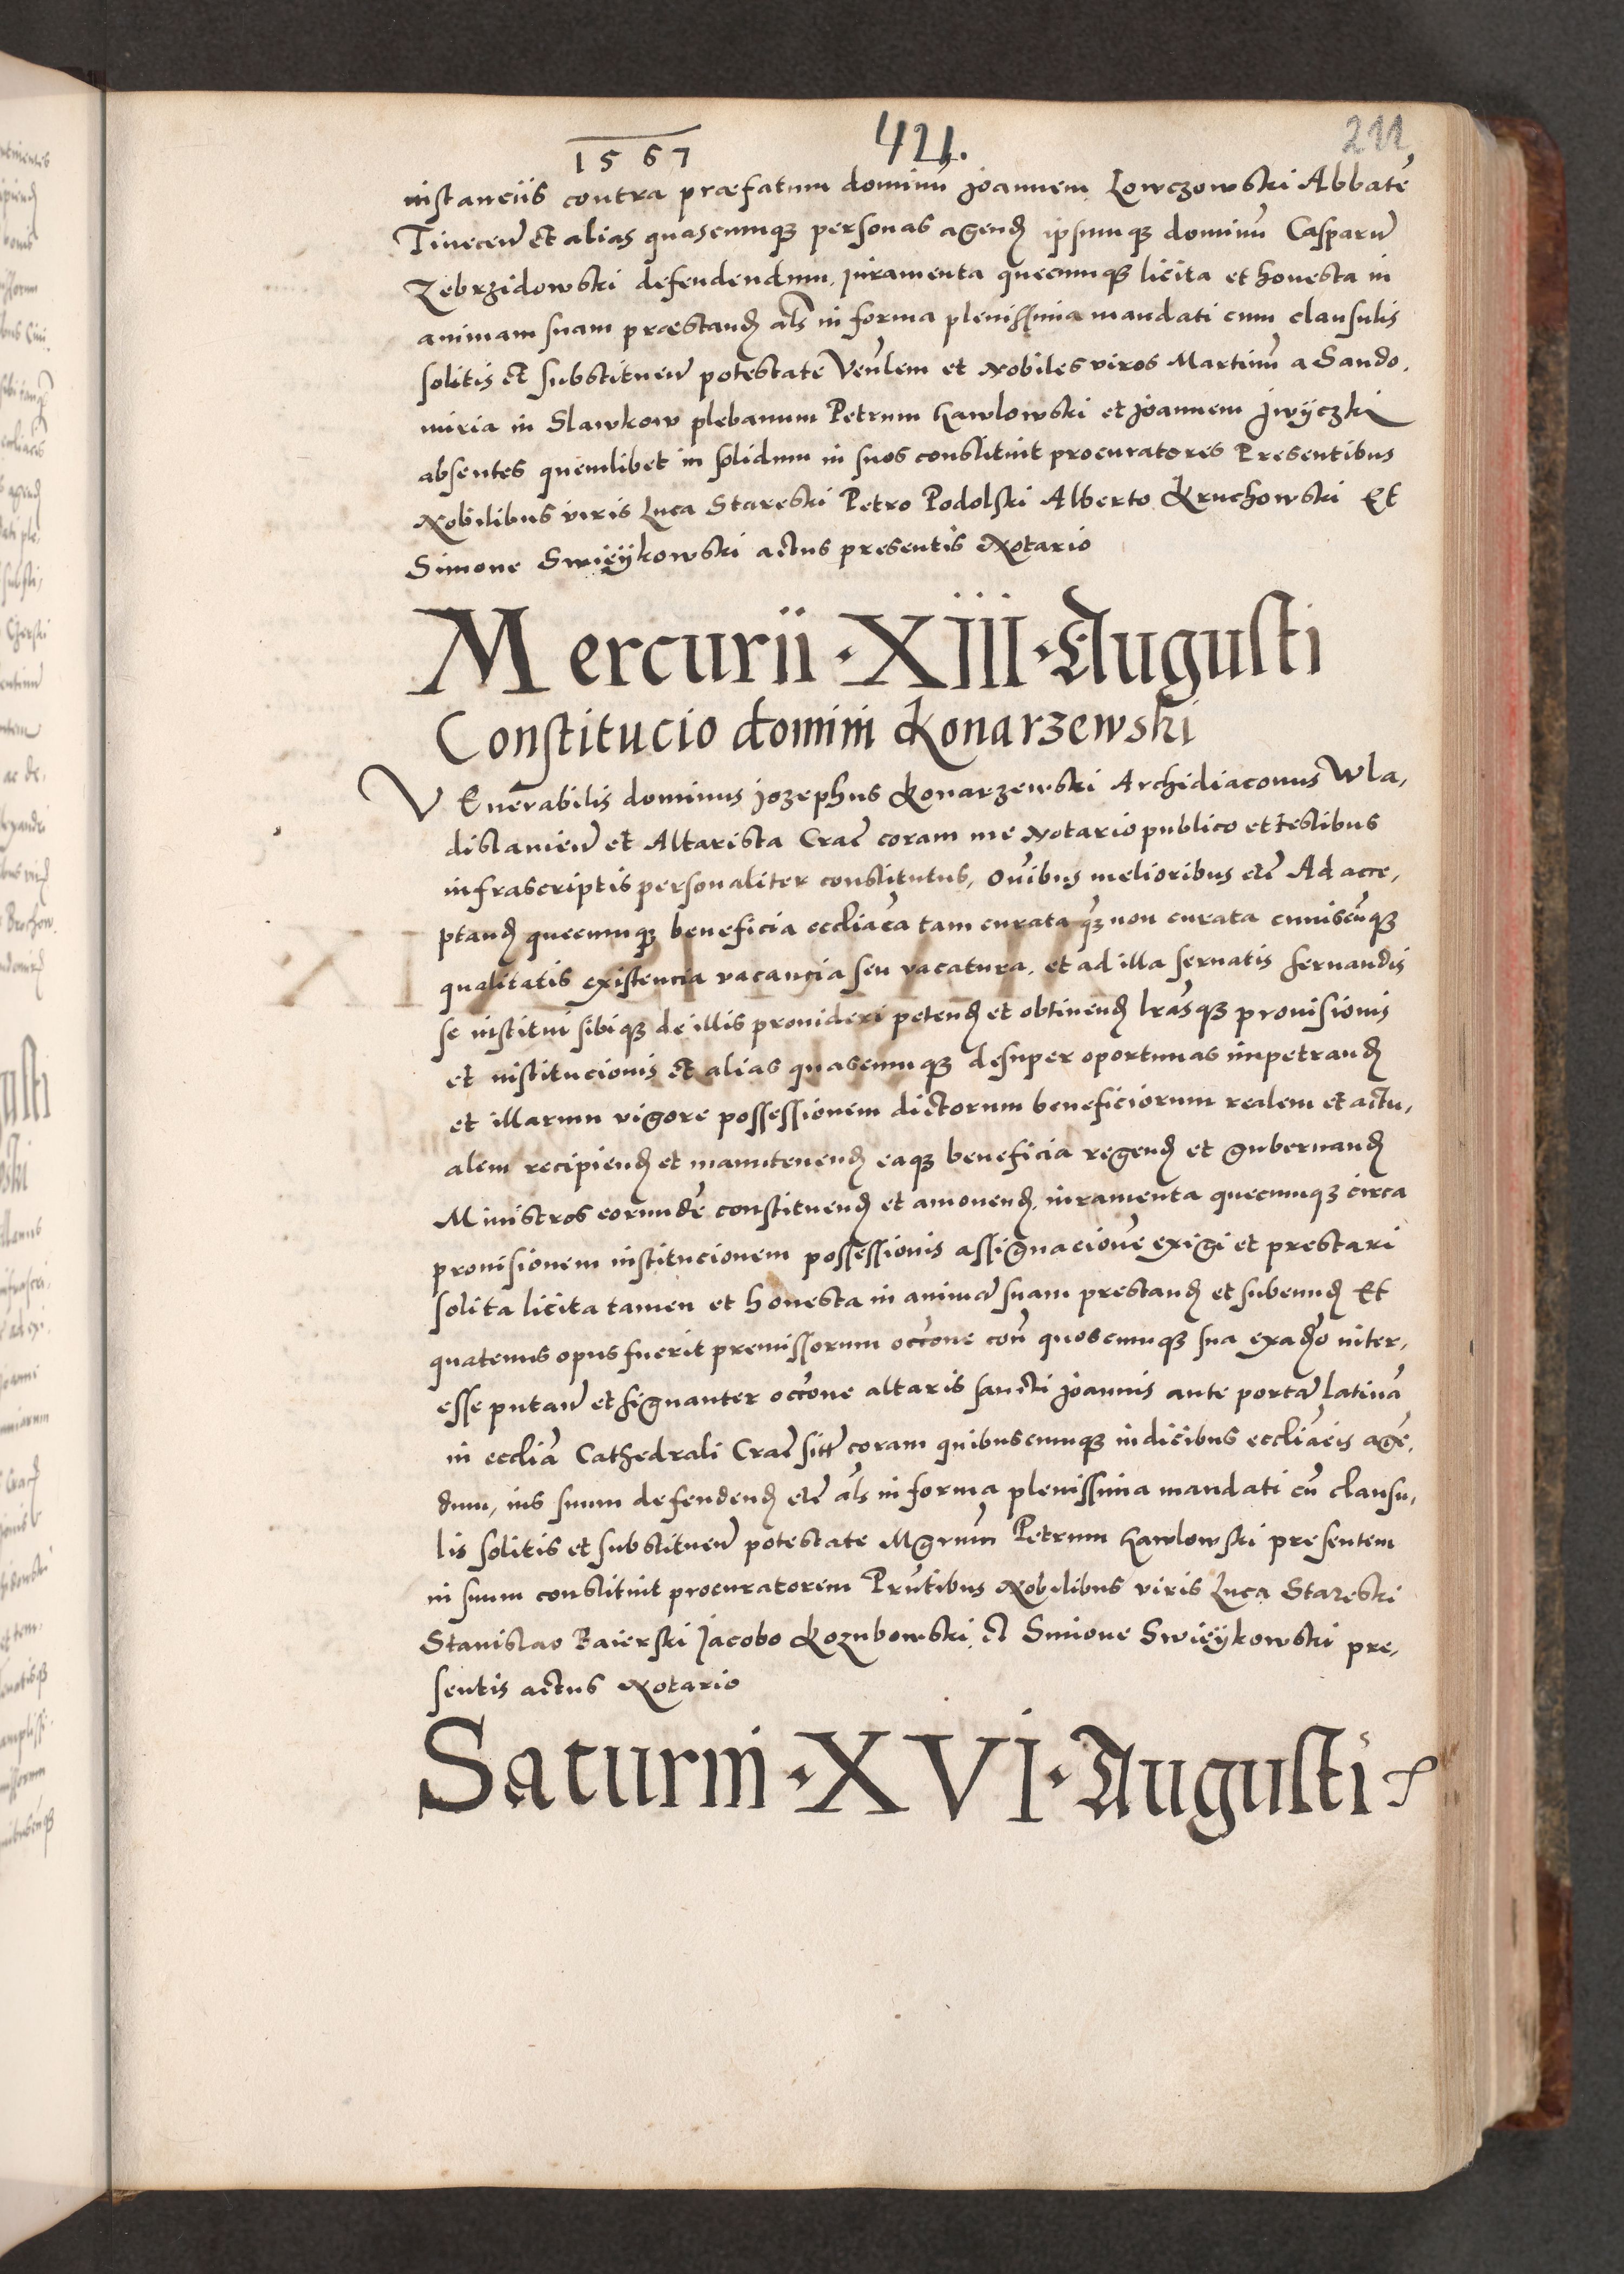 1567
421.
211
instanciis contra præfatum dominũ Joannem Lowczowski Abbatẽ
Tinecen̄ et alias quascumq₃ personas agend̄ ipsumq₃ dominũ Casparũ
Zebrzidowski defendendum, iuramenta quecumq₃ licita et honesta in
animam suam præstand̄ al̄s in forma plenissima mandati cum clausulis
solitis et substituen̄ potestate Ven̄lem et Nobiles viros Martinũ a Sando,
miria in Slawkow plebanum Petrum Kawlowski et Joannem Jwyczki
absentes quemlibet in solidum in suos constituit procuratores Presentibus
Nobilibus viris Luca Stareski Petro Podolski Alberto Kruchowski Et
Simone Swieÿkowski actus presentis Notario
Mercurii · XIII · Augusti
Constitucio domini Konarzewski
VEnerabilis dominus Jozephus Konarzewski Archidiaconus Wla,
dislavien̄ et Altarista Crac̄ coram me Notario publico et testibus
infrascriptis personaliter constitutus, Om̄ibus melioribus etc̄ Ad acce,
ptand̄ quecumq₃ beneficia eccliãca tam curata q̃₃ non curata cuiuscũq₃
qualitatis existencia vacancia seu vacatura, et ad illa servatis servandis
se institui sibiq₃ de illis provideri petend̄ et obtinend̄ lr̃asq₃ provisionis
et institucionis et alias quascumq₃ desuper oportunas impetrand̄
et illarum vigore possessionem dictorum beneficiorum realem et actu,
alem recipiend̄ et manutenend̄ eaq₃ beneficia regend̄ et gubernand̄
Ministros eorundẽ constituend̄ et amovend̄, iuramenta quecumq₃ circa
provisionem institucionem possessionis assignacionẽ exigi et prestari
solita licita tamen et honesta in animã suam prestand̄ et subeund̄ Et
quatenus opus fuerit premissorum occõne con̄ quoscumq₃ sua ex adṽo inter,
esse putan̄ et signanter occõne altaris sancti Joannis ante portã latinã
in ecclĩa Cathedrali Crac̄ sitt̄ coram quibuscumq₃ iudicibus eccliãcis agẽ,
dum, ius suum defendend̄ etc̄ al̄s in forma plenissima mandati cũ clausu,
lis solitis et substituen̄ potestate Mgrum̃ Petrum Kawlowski presentem
in suum constituit procuratorem Prñtibus Nobilibus viris Luca Stareski
Stanislao Baierski Jacobo Kozubowski et Simone Swieÿkowski pre,
sentis actus Notario
Saturni · XVI · Augusti